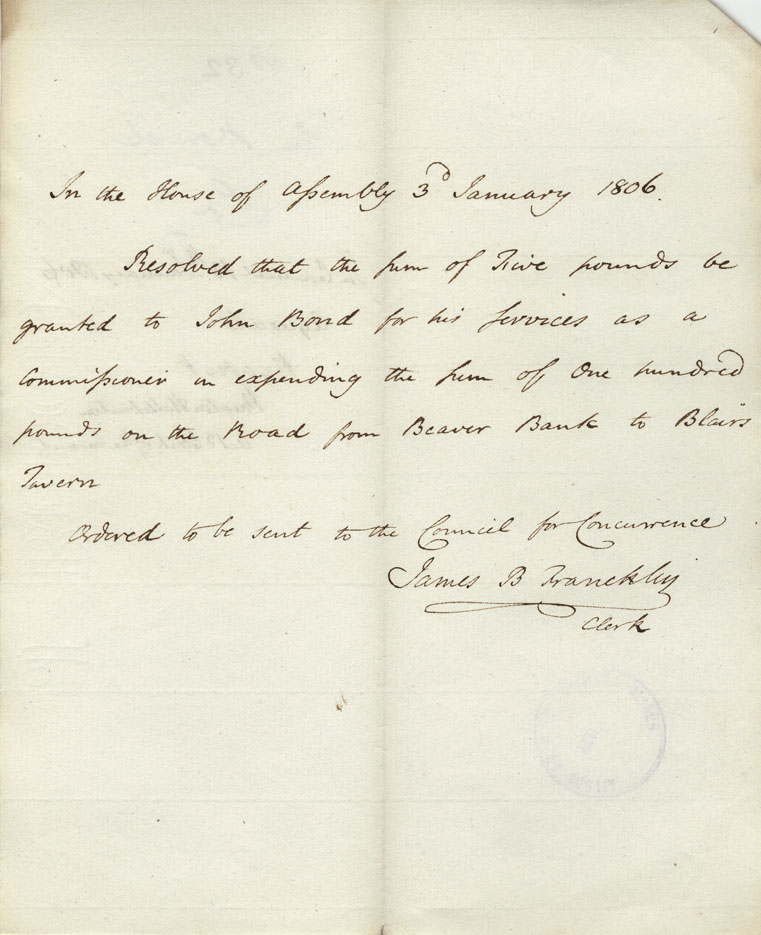 In the House of Assembly 3d January 1806.
Resolved that the sum of Five pounds be
granted to John Bond for his services as a
Commissioner in expending the sum of One hundred
pounds on the Road from Beaver Bank to Blairs
Tavern
Ordered to be sent to the Council for Concurrence
James B Francklin
Clerk